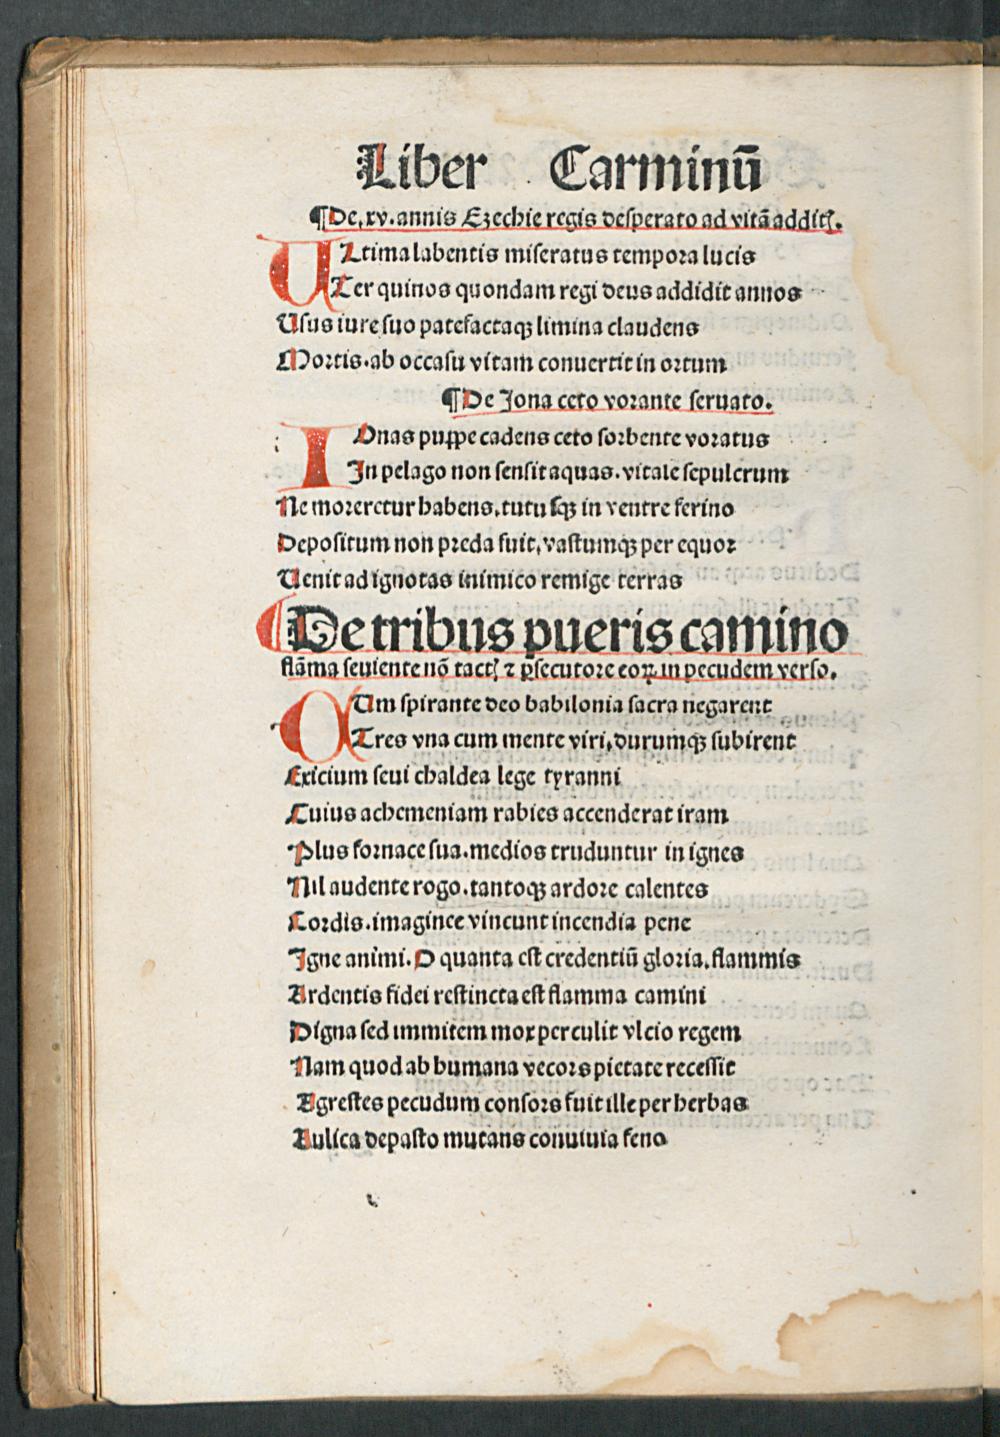 Liber Carminū
¶De.xv.annis Ezechie regis desperato ad vitā additꝭ.
ULtima labentis miseratus tempora lucis
Ter quinos quondam regi deus addidit annos
Usus iure suo patefactaqꝫ limina claudens
Mortis.ab occasu vitam conuertit in ortum
¶De Jona ceto vorante seruato.
IOnas puppe cadens ceto sorbente voratus
In pelago non sensit aquas.vitale sepulcrum
Ne moreretur habens.tutusqꝫ in ventre ferino
Depositum non preda fuit,vastumqꝫ per equor
Uenit ad ignotas inimico remige terras
¶De tribus pueris camino
flāma seuiente nō tactꝭ ⁊ ꝑsecutore eoꝝ in pecudem verso.
CUm spirante deo babilonia sacra negarent
Tres vna cum mente viri,durumqꝫ subirent
Exicium seui chaldea lege tyranni
Cuius achemeniam rabies accenderat iram
Plus fornace sua.medios truduntur in ignes
Nil audente rogo.tantoqꝫ ardore calentes
Cordis.imagince vincunt incendia pene
Igne animi.O quanta est credentiū gloria.flammis
Ardentis fidei restincta est flamma camini
Digna sed immitem mox perculit vlcio regem
Nam quod ab humana vecors pietate recessit
Agrestes pecudum consors fuit ille per herbas
Aulica depasto mutans conuiuia feno